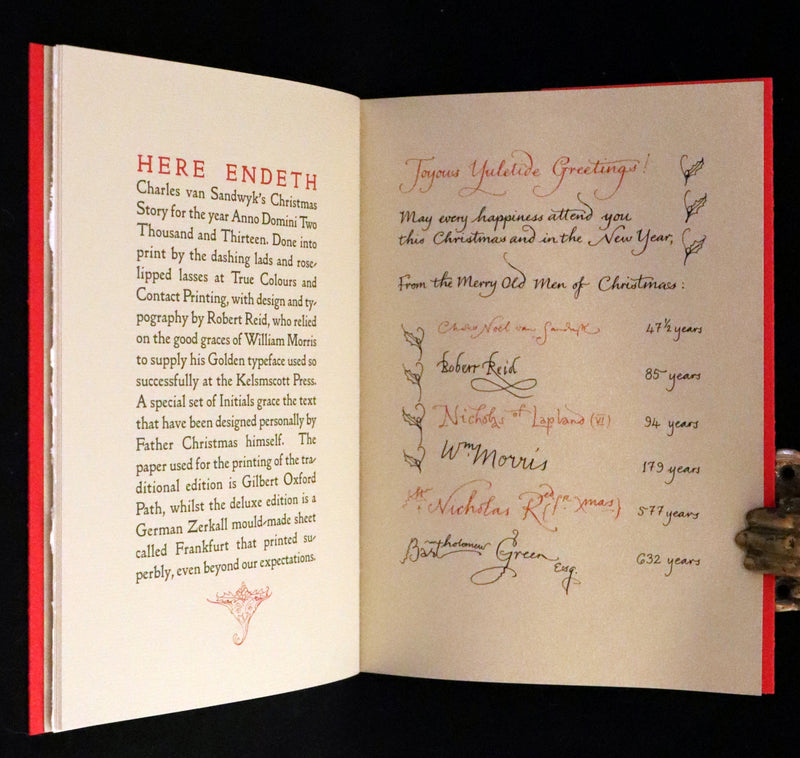 HERE ENDETH
Charles van Sandwyk's Christmas
Story for the year Anno Domini Two
Thousand and Thirteen. Done into
print by the dashing lads and rose-
lipped lasses at True Colours and
Contact Printing, with design and ty-
pography by Robert Reid, who relied
on the good graces of William Morris
to supply his Golden typeface used so
successfully at the Kelsmscott Press.
A special set of Initials grace the text
that have been designed personally by
Father Christmas himself. The
paper used for the printing of the tra-
ditional edition is Gilbert Oxford
Path, whilst the deluxe edition is a
German Zerkall mould-made sheet
called Frankfurt that printed su-
perbly, even beyond our expectations.
Joyous Yuletide Greetings!
May every happiness attend you
this Christmas and in the New Year,
From the Merry Old Men of Christmass:
Chas Noel van Sandwyk 47½ years
Robert Reid 85 years
Nicholas of Lapland (VI) 94 years
Wm Morris 179 years
Nicholas Xmas) 577 years
Bartholomew Green Esq. 632 years